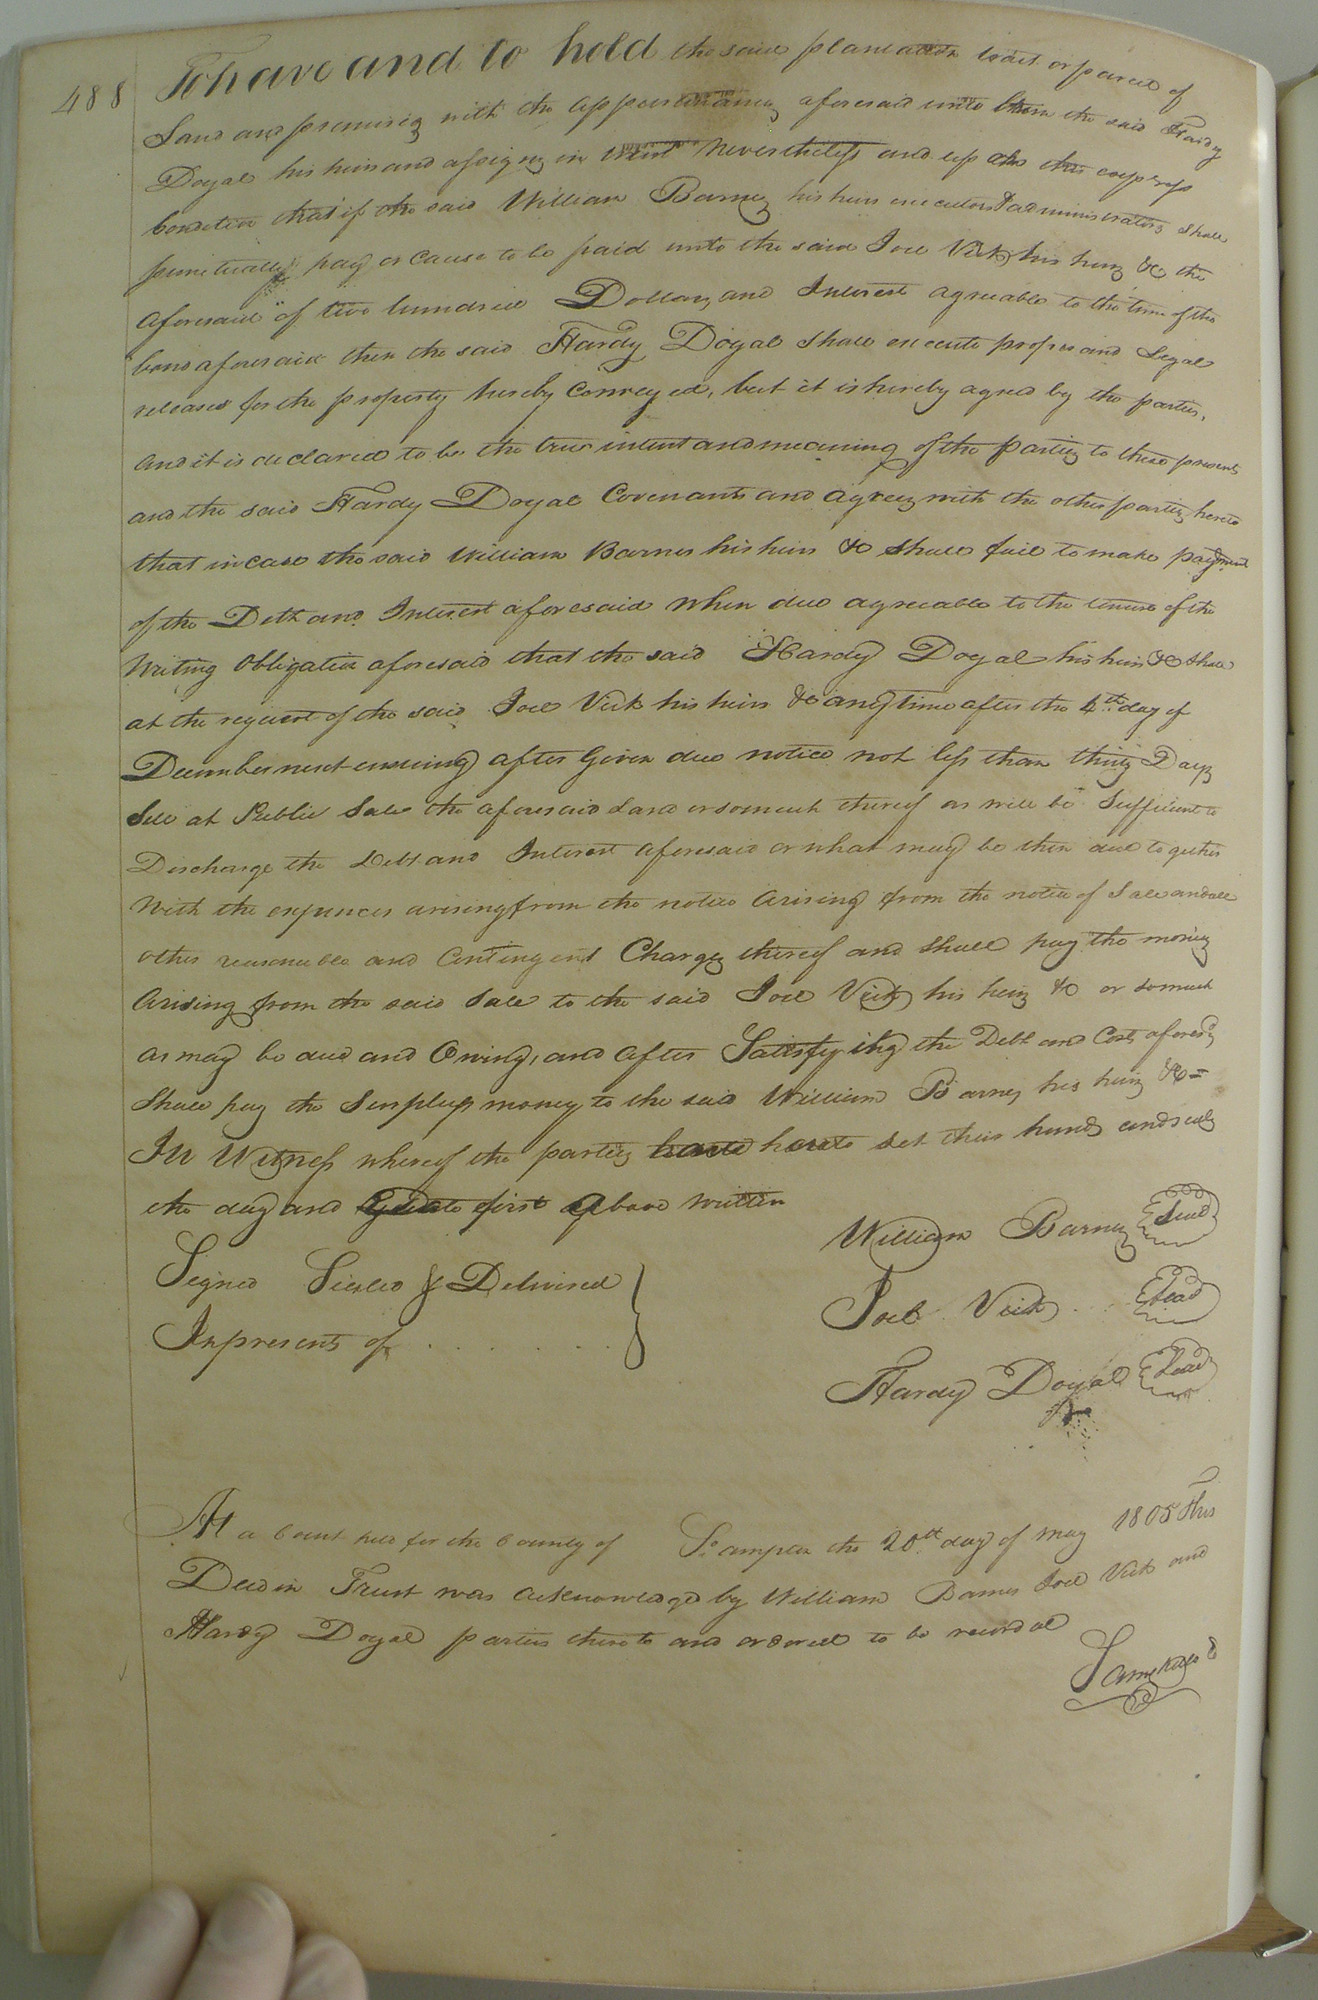 488
To have and to hold the said plantation tract or parcel of
Land and premises with the appurtenances aforesaid unto him the said Hardy
Doyal his heirs and assigns in trust Nevertheless and up on this express
Condition that if the said William Barnes his heirs executors & administrators shall
punctually pay or cause to be paid unto the said Joel Vick his heirs &c the
aforesaid of two hundred Dollars and Interest agreeable to the time of the
bond aforesaid then the said Hardy Doyal shall execute proper and Legal
releases for the property hereby Conveyed, but it is hereby agreed by the parties,
and it is declared to be the true intent and meaning of the parties to these presents
and the said Hardy Doyal Covenants and agrees with the other parties hereto
that in case the said William Barnes his heirs &c shall fail to make payment
of the Debt and Interest aforesaid when due agreeable to the tenure of the
Writing Obligation aforesaid that the said Hardy Doyal his heirs &c shall
at the request of the said Joel Vick his heirs &c any time after the 4th day of
December next ensuing after Given due notice not less than thirty Days
Sell at Public Sale the aforesaid Land or so much thereof as will be Sufficient to
Discharge the Debt and Interest aforesaid or what may be then due together
With the expences arising from the notice Arising from the notice of Sale and all
other reasonable and Contingent Charges thereof and shall pay the money
Arising from the said Sale to the said Joel Vick his heirs &c or so much
as may be due and Owing, and after Satisfying the Debt and Costs aforesd
Shall pay the Surpluss money to the said William Barnes his heirs &c =
In Witness whereof the parties hereto set their hands and seals
the day and first above written
William Barnes Seal
Signed Sealed & Delivered
Joel Vick Seal
In presents of
Hardy Doyal Seal
At a Court held for the County of So. ampton the 20th day of May 1805 This
Deed in Trust was acknowledged by William Barnes Joel Vick and
Hardy Doyal parties thereto and ordered to be recorded